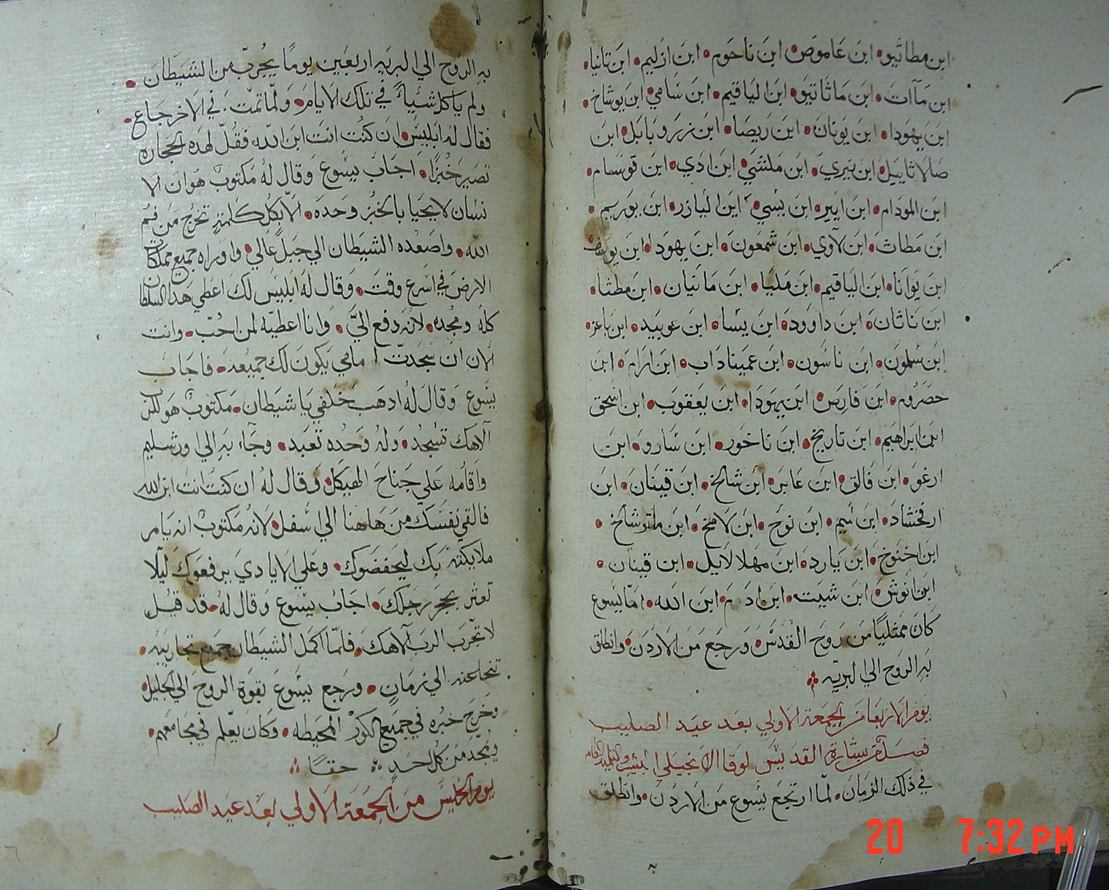 ابن مطاثيو • ابن عاموص • ابن ناحوم • ابن ازليم • ابن نانيا •
ابن مآات • ابن ماثاثيو • ابن الياقيم • ابن سامي • ابن يوشاخ •
ابن يهودا • ابن يونان • ابن ريصا • ابن زروبابل • ابن
صالاثاييل • ابن نيري • ابن ملشي • ابن ادي • ابن قوسام •
ابن المودام • ابن ايير • ابن يسي • ابن اليازر • ابن يوريم •
ابن مطاث • ابن لاوي • ابن شمعون • ابن يهودا • ابن يوسف
ابن يوانا • ابن الياقيم • ابن مليا • ابن مانيان • ابن مطثا •
ابن ناثان • ابن داوود • ابن يسا • ابن عوبيد • ابن باعز •
ابن سلمون • ابن ناسون • ابن عميناداب • ابن ارام • ابن
حصروم • ابن فارص • ابن يهودا • ابن يعقوب • ابن اسحق
ابن ابراهيم • ابن تاريخ • ابن ناخور • ابن سارو • ابن
ارغو • ابن فالق • ابن عابر • ابن شالخ • ابن قينان • ابن
ارفخشاد • ابن سيم • ابن نوح • ابن لامخ • ابن متوشالخ •
ابن اخنوخ • ابن يارد • ابن مهلالاييل • ابن قينان •
ابن انوش • ابن شيت • ابن ادم • ابن الله • اما يسوع
كان ممتليا من روح القدس • ورجع من الاردن • وانطلق
به الروح الي البريه
يوم الاربعا من الجمعة الاولي بعد عيد الصليب
فصل من بشارة القديس لوقا الانجيلي
في ذلك الزمان • لما ارتجع يسوع من الاردن • وانطلق
به الروح الي البريه اربعين يوما يجرب من الشيطان •
ولم ياكل شيا في تلك الايام • ولما تمت في الاخر جاع •
فقال له ابليس ان كنت انت ابن الله فقل لهده الحجاره
تصير خبزا • اجاب يسوع وقال له مكتوب هو ان الا
نسان لا يحيا بالخبز وحده • الا بكل كلمة تخرج من فم
الله • واصعده الشيطان الي جبل عالي • واوراه جميع ممالك
الارض في اسرع وقت • وقال له ابليس لك اعطي هدا السلطان
كله ومجده • لانه دفع الي • وانا اعطيه لمن احب • وانت
الان ان سجدت امامي يكون لك جميعه • فاجاب
يسوع وقال له ادهب خلفي يا شيطان • مكتوب هو للرب
الاهك تسجد • وله وحده تعبد • وجاء به الي ورشليم
واقامه علي جناح الهيكل • وقال له ان كنت انت ابن الله
فالقي نفسك من هاهنا الي اسفل • لانه مكتوب انه يامر
ملايكته بك ليحفضوك • وعلي الايادي يرفعوك ليلا
تعثر بحجر رجلك • اجاب يسوع وقال له • قد قيل
لا تجرب الرب الاهك • فلما اكمل الشيطان جميع تجاربيه •
تنحا عنه الي زمان • ورجع يسوع بقوة الروح الي الجليل •
وخرج خبره في جميع الكور المحيطه • وكان يعلم في مجامعهم •
ويمجد من كل احد حقا
يوم الخميس من الجمعة الاولي بعد عيد الصليب
20 7:32 PM